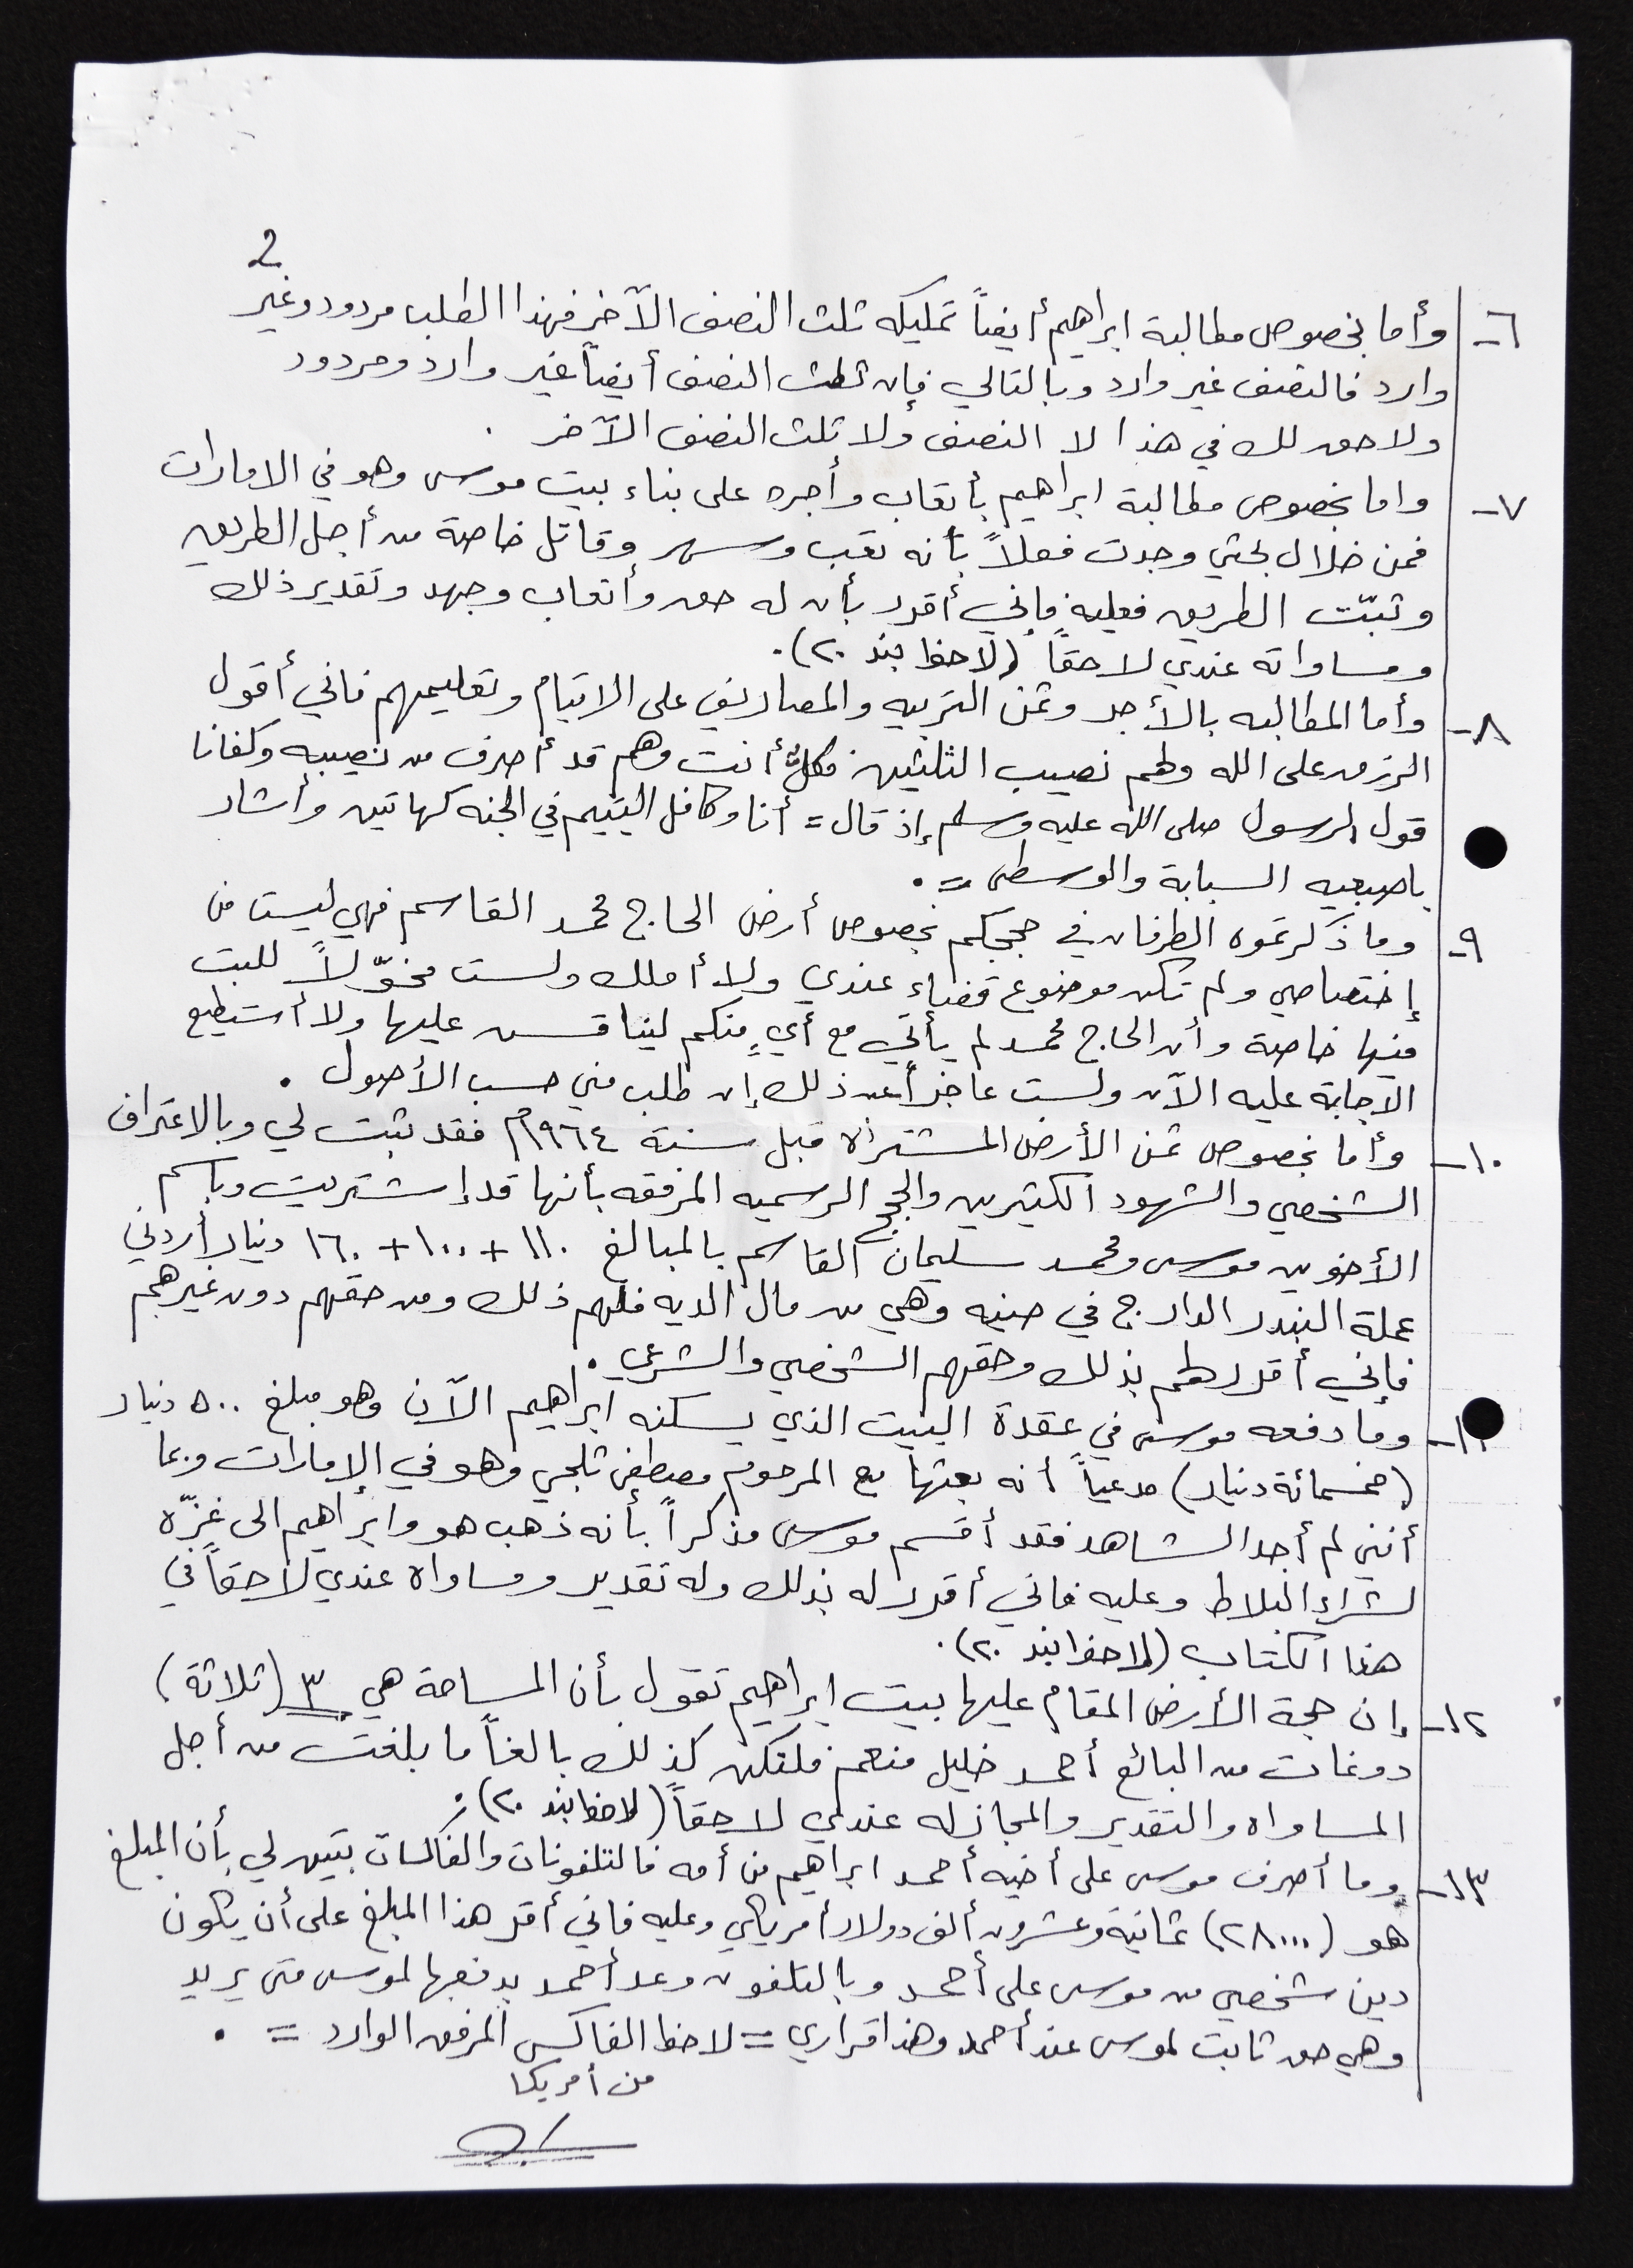 2
٦- وأما بخصوص مطالبة ابراهيم أيضاً تمليكه ثلث النصف الآخر فهذا الطلب مردود وغير
وارد فالنصف غير وارد وبالتالي فإن ثلث النصف أيضاً غير وارد ومردود
ولا حق لك في هذا لا النصف ولا ثلث النصف الآخر .
٧- واما بخصوص مطالبة ابراهيم بأتعاب وأجره على بناء بيت موسى وهو في الامارات
فمن خلال بحثي وجدت فعلاً بأنه تعب وسهر وقاتل خاصة من أجل الطريق
وتبّت الطريق فعليه فإني أقرر بأن له حق وأتعاب وجهد وتقدير ذلك
ومساواته عندي لاحقاً (لاحظ بند ٢٠).
٨- وأما المطالبه بالأجر وثمن التربيه والمصاريف على الايتام وتعليمهم فاني أقول
الرزق على الله ولهم نصيب الثلثين فكلٌ أنت وهم قد أصرف من نصيبه وكفانا
قول الرسول صلى الله عليه وسلم إذ قال = أنا وكافل اليتيم في الجنه كهاتين وأشار
باصبعيه السبابة والوسطى = .
٩- وما ذكرتموه الطرفان في حججكم بخصوص أرض الحاج محمد القاسم فهي ليست من
إختصاصي ولم تكن موضوع قضاء عندي ولا أملك ولست مخوّلاً للبت
فيها خاصة وأن الحاج محمد لم يأتي مع أيٍ منكم ليناقس عليها ولا أستطيع
الاجابة عليه الآن ولست عاجزاً عن ذلك إن طلب مني حسب الأصول .
١٠- وأما بخصوص ثمن الأرض المشتراه قبل سنة ١٩٦٤م فقد ثبت لي وبالاعتراف
الشخصي والشهود الكثيرين والحجج الرسميه المرفقه بأنها قد إشتريت وباسم
الأخوين موسى ومحمد سليمان القاسم بالمبالغ ١١٠ + ١٠٠ + ١٦٠ دينار أردني
عملة البندر الدارج في حينه وهي من مال الديه فلهم ذلك ومن حقهم دون غيرهم
فإني أقرر لهم بذلك وحقهم الشخصي والشرعي .
١١- وما دفعه موسى في عقدة البيت الذي يسكنه ابراهيم الآن وهو مبلغ ٥٠٠ دينار
(خمسمائة دينار) مدعياً أنه بعثها مع المرحوم مصطفى ثلجي وهو في الإمارات وبما
أنني لم أجد الشاهد فقد أقسم موسى مذكراً بأنه ذهب هو وابراهيم الى غزّه
لشراء البلاط وعليه فاني أقرر له بذلك وله تقدير ومساواه عندي لاحقاً في
هذا الكتاب (لاحظ بند ٢٠).
١٢- وإن حجة الأرض المقام عليها بيت ابراهيم تقول بأن المساحة هي ٣ (ثلاثة)
دونمات من البائع أحمد خليل منعم فلتكن كذلك بالغاً ما بلغت من أجل
المساواه والتقدير والمجاز له عندي لاحقاً (لاحظ بند ٢٠).
١٣- وما أصرف موسى على أخيه أحمد ابراهيم من أمه فالتلفونات والفاكسات تبين لي بأن المبلغ
هو (٢٨٠٠٠) ثمانية وعشرون ألف دولار أمريكي وعليه فاني أقر هذا المبلغ على أن يكون
دين شخصي من موسى على أحمد وبالتلفون وعد أحمد بدفعها لموسى متى يريد
وهي حق ثابت لموسى عند أحمد وهذا قراري = لاحظ الفاكس المرفق الوارد = .
من أمريكا